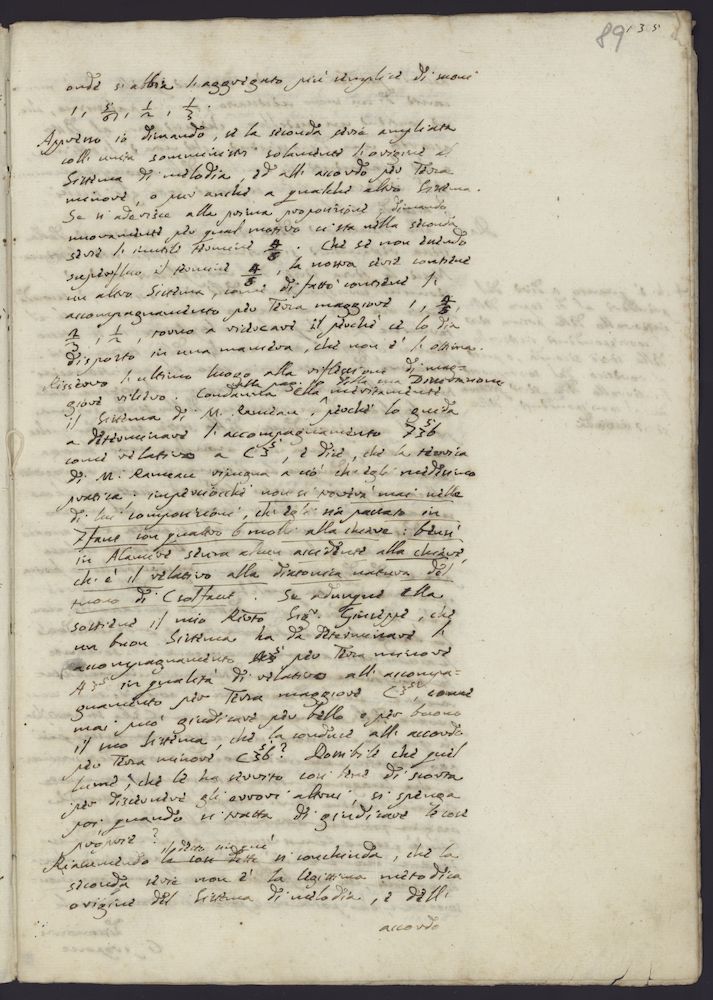 89 135
onde si abbia l'aggregato più semplice di suoni
1, 5/6, 1/2, 1/3.
Appresso io dimando, se la seconda serie ampliata
coll' unità somministri solamente l'origine al
Sistema di melodia, ed all' accordo per Terza
minore, o pur anche a qualche altro Sistema.
Se si aderisce alla prima proposizione, dimando
nuovamente per qual motivo ci sta nella seconda
serie l'inutile termine 4/5. Che se non essendo
superfluo il termine 4/5, la nostra serie contiene
un altro Sistema, come di fatto contiene l'
accompagnamento per Terza maggiore 1, 4/5,
2/3, 1/2, torno a ridicare il perché ce lo dia
disposto in una maniera, che non è l'ottima.
Riserbo l'ultimo luogo alla riflessione di mag-
giore rilievo. Condanna Ella meritamente
alla pag. 10 della sua Dissertazione
il Sistema di M. Rameau, perché lo guida
a determinare l'accompagnamento
come relativo a C 3 5, e dice, che la teorica
di M. Rameau ripugna a ciò che egli medesimo
pratica: imperciocché non si troverà mai nelle
di lui composizioni, che egli sia passato in
Ffaut con quattro b molli alla chiave: bensì
in Alamirè senza alcun accidente alla chiave,
che è il relativo alla diatonia natura del
tuono di Csolfaut. Se adunque ella
sostiene il mio Rivto Sigr. Giuseppe, che
un buon Sistema ha da determinare l'
accompagnamento per Terza minore
A 3 5 in qualità di relativo all' accompa-
gnamento per Terza maggiore C 3 5, come
mai può giudicare per bello e per buono
il suo Sistema, che la conduce all' accordo
per Terza minore C 3b 5? Possibile che quel
lume, che le ha servito con lode di scorta
per discernere gli errori altrui, si spenga
poi quando si tratta di giudicare le cose
proprie?
Riassumendo le cose dette si conchiuda, che la
seconda serie non è la legittima metodica
origine del Sistema di melodia, e dell'
accordo